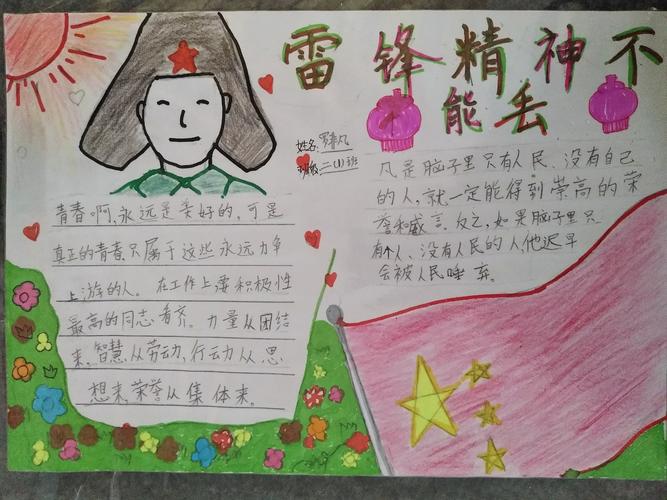 雷锋精神不
能丢
姓名:罗 凡
班级二(1)班
青春啊,永远是美好的,可是
真正的青春只属于这些永远力争
上游的人。在工作上要积极性
最高的同志看齐。力量从团结
来,智慧从劳动,行动从思
想来,荣誉从集体来。
凡是脑子里只有人民、没有自己
的人,就一定能得到崇高的荣
誉和威言。反之,如果脑子里只
有个人、没有人民的人他迟早
会被人民唾弃。